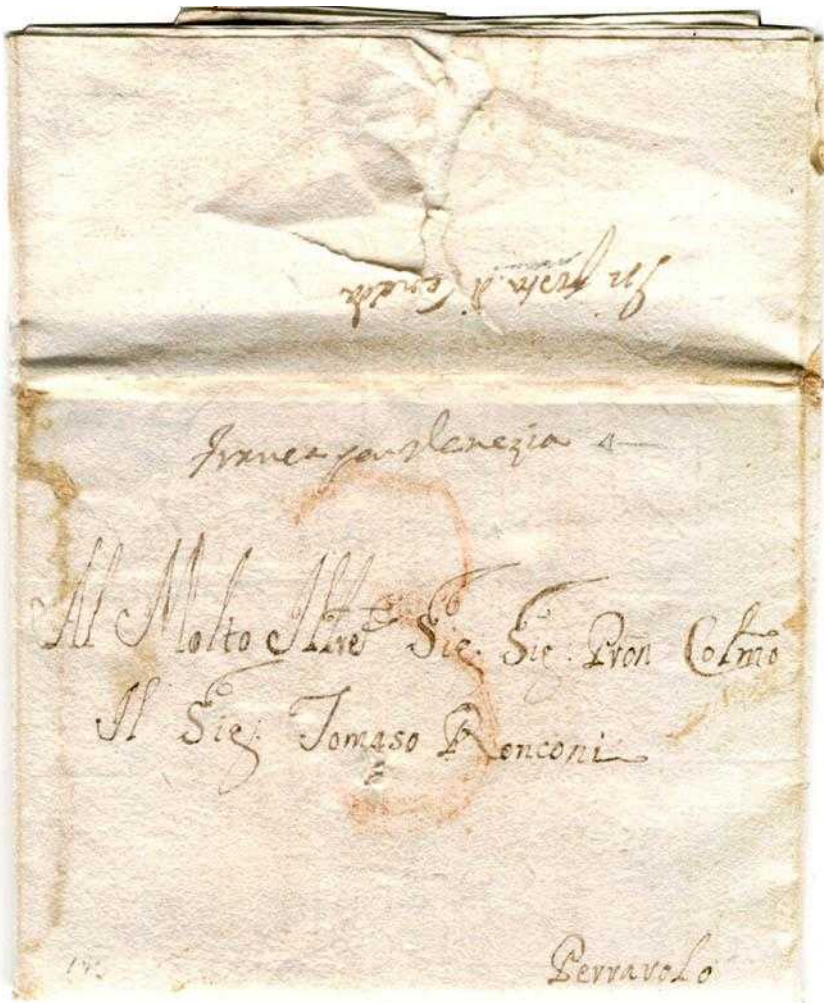 In filza di Corda
franca per Venezia
3
Al Molto Illre Sig. Sig. Pron Colmo
Il Sig. Tomaso Ronconi
Perrarolo